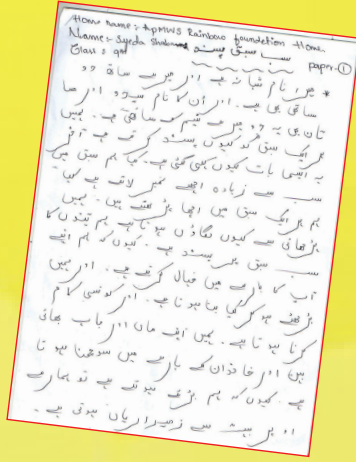 Home name: APMWS Rainbow foundation Home.
Name:- Syeda Shabana
Class: 9th
سب سبق پسند
paper-①
* میرا نام شبانہ ہے اور میرے ساتھ دو
ساتھی بھی ہے۔ اور اُن کا نام سیدہ اور
یہ دو میرے ساتھی ہے۔ ہمیں
ہر ایک سبق کو کیوں پسند کرتے ہے
یہ ایسی بات کیوں کہی گئی ہے۔ ہم سبق میں
سب سے زیادہ اچھے نمبر لاتے ہے
ہم ہر ایک سبق میں اچھا پڑھتے ہیں۔ ہمیں
پڑھائی سے کیوں لگاؤں ہوتا ہے ہم تینوں کا
سب سبق پسند ہے۔ کیوں کہ ہم اپنے
آپ کا بارے میں خیال کرتے ہے۔ اور ہمیں
پڑھ کر کیا بنا ہوتا ہے۔ اور کونسی کام
کرنا ہوتا ہے۔ ہمیں اپنے ماں اور باپ بھائی
بہن اور خاندان کے بارے میں سوچنا ہوتا
ہے۔ کیوں کہ ہم بڑے ہوتے ہے تو ہمارے
اوپر بہت سے زمیداریاں ہوتی ہے۔